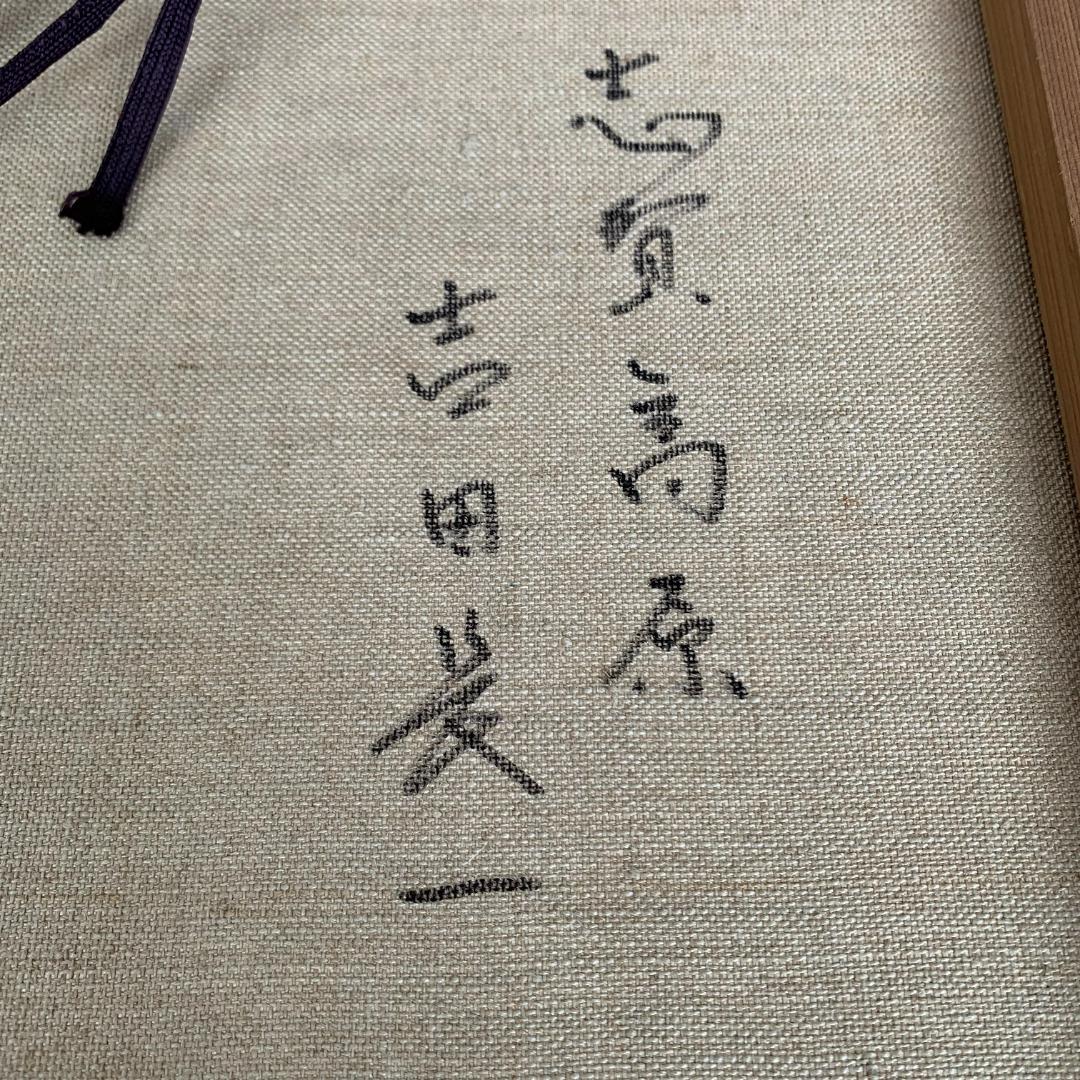 志賀高原
吉田 一